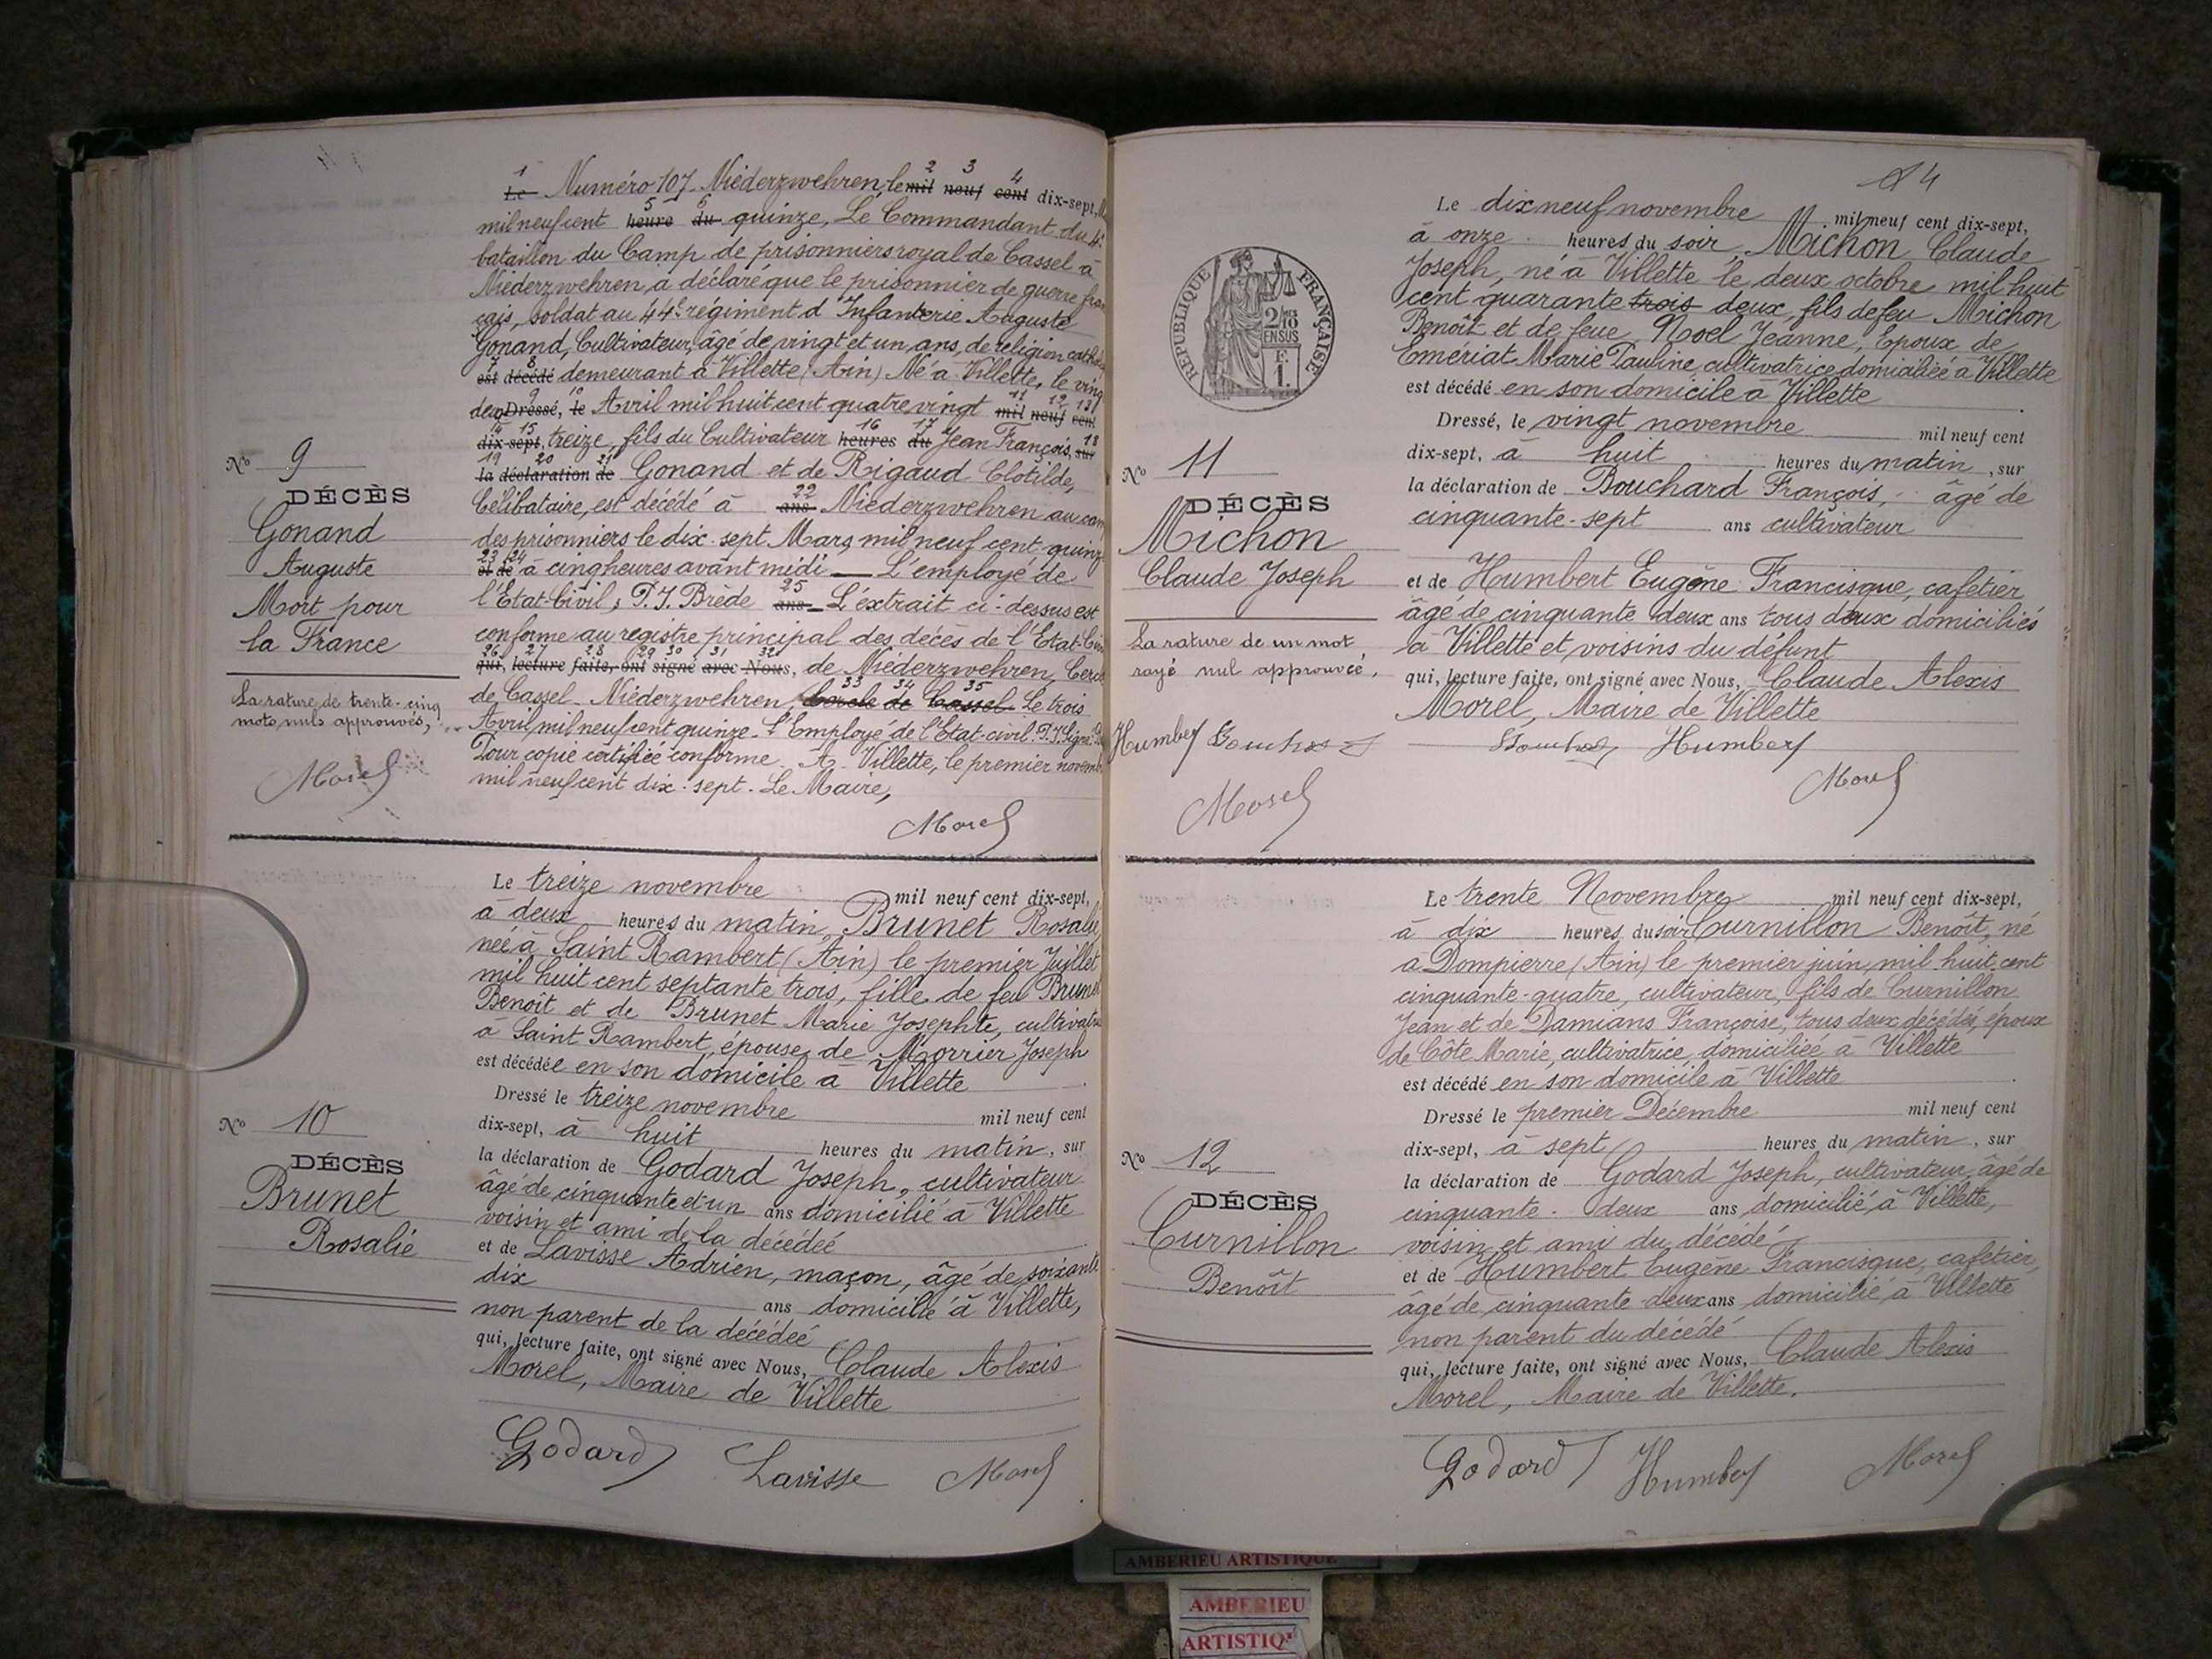 1 2 3 4
Le Numéro 107 Niederzwehren, le mil neuf cent dix-sept,
5 6
mil neuf cent heure du quinze, Le Commandant du 4e
bataillon du Camp de prisonniers royal de Cassel à
Niederzwehren, a déclaré que le prisonnier de guerre fran
çais, soldat au 44e régiment d'Infanterie Auguste
Gonand, Cultivateur, âgé de vingt et un ans, de religion catho
7 8
est décédé demeurant à Villette (Ain) Né à Villette, le ving
9 10 11 12 13
deux Dressé, le Avril mil huit cent quatre vingt mil neuf cent
14 15 16 17 18
dix-sept, treize, fils du Cultivateur heures du Jean François, sur
19 20 21
la déclaration de Gonand et de Rigaud Clotilde,
22
Célibataire, est décédé à ans Niederzwehren au cam
des prisonniers le dix-sept Mars mil neuf cent quinz
23 24
et de à cinq heures avant midi — L'employé de
25
l'Etat-Civil, P.I. Brède ans — L'extrait ci-dessus est
conforme au registre principal des décès de l'Etat-Civ
26 27 28 29 30 31 32
qui, lecture faite, ont signé avec Nous, de Niederzwehren, Cercle
33 34 35
de Cassel - Niederzwehren, Cercle de Cassel Le trois
Avril mil neuf cent quinze - L'Employé de l'Etat-civil. P.I. Signé
Pour copie certifiée conforme - A Villette, le premier novemb
mil neuf cent dix-sept. Le Maire,
Morel
No 9
DÉCÈS
Gonand
Auguste
Mort pour
la France
La rature de trente-cinq
mots nuls approuvés,
Morel
Le treize novembre mil neuf cent dix-sept,
à deux heures du matin, Brunet Rosalie
née à Saint Rambert (Ain) le premier Juillet
mil huit cent septante trois, fille de feu Brunet
Benoît et de Brunet Marie Josephte, cultivatr
à Saint Rambert, épouse de Morrier Joseph
est décédée en son domicile à Villette
Dressé le treize novembre mil neuf cent
dix-sept, à huit heures du matin, sur
la déclaration de Godard Joseph, cultivateur
âgé de cinquante et un ans domicilié à Villette
voisin et ami de la décédeé
et de Lavisse Adrien, maçon, âgé de soixante
dix ans domicilié à Villette,
non parent de la décédeé
qui, lecture faite, ont signé avec Nous, Claude Alexis
Morel, Maire de Villette
Godard Lavisse Morel
No 10
DÉCÈS
Brunet
Rosalie
14
Le dix neuf novembre mil neuf cent dix-sept,
à onze heures du soir, Michon Claude
Joseph, né à Villette le deux octobre mil huit
cent quarante trois deux, fils de feu Michon
Benoît et de feue Noel Jeanne, Epoux de
Emériat Marie Pauline, cultivatrice domiciliée à Villette
est décédé en son domicile à Villette
Dressé, le vingt novembre mil neuf cent
dix-sept, à huit heures du matin, sur
la déclaration de Bouchard François, âgé de
cinquante-sept ans cultivateur
et de Humbert Eugène Francisque, cafetier
âgé de cinquante deux ans tous deux domiciliés
à Villette et voisins du défunt
qui, lecture faite, ont signé avec Nous, Claude Alexis
Morel, Maire de Villette
Bouchard Humbert
Morel
RÉPUBLIQUE FRANÇAISE
2/10
EN SUS
F.
1.
No 11
DÉCÈS
Michon
Claude Joseph
La rature de un mot
rayé nul approuvée,
Humbert Bouchard
Morel
Le trente Novembre mil neuf cent dix-sept,
à dix heures du soir Curnillon Benoît, né
à Dompierre (Ain) le premier juin mil huit cent
cinquante-quatre, cultivateur, fils de Curnillon
Jean et de Damians Françoise, tous deux décédés, époux
de Côte Marie, cultivatrice, domiciliée à Villette
est décédé en son domicile à Villette
Dressé le premier Décembre mil neuf cent
dix-sept, à sept heures du matin, sur
la déclaration de Godard Joseph, cultivateur, âgé de
cinquante-deux ans domicilié à Villette,
voisin et ami du décédé
et de Humbert Eugène Francisque, cafetier,
âgé de cinquante-deux ans domicilié à Villette
non parent du décédé
qui, lecture faite, ont signé avec Nous, Claude Alexis
Morel, Maire de Villette.
Godard Humbert Morel
No 12
DÉCÈS
Curnillon
Benoît
AMBERIEU ARTISTIQUE
AMBERIEU
ARTISTIQ